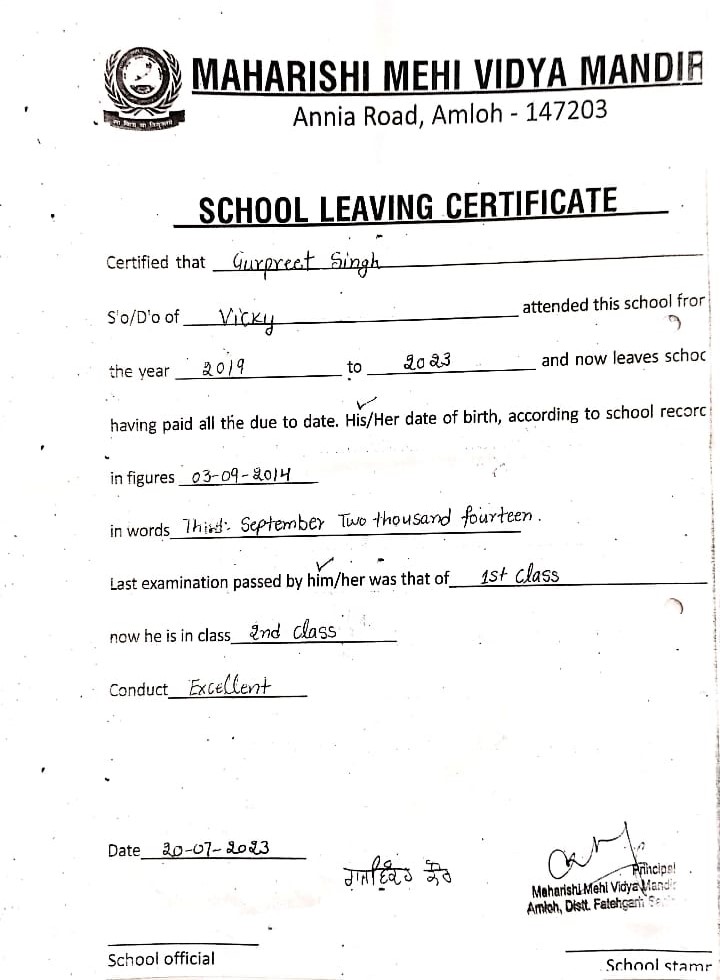 MAHARISHI MEHI VIDYA MANDIR
Annia Road, Amloh - 147203
SCHOOL LEAVING CERTIFICATE
Certified that Gurpreet Singh
S'o/D'o of Vicky attended this school from
the year 2019 to 2023 and now leaves schoo
having paid all the due to date. His/Her date of birth, according to school record
in figures 03-09-2014
in words Third: September Two thousand fourteen.
Last examination passed by him/her was that of 1st Class
now he is in class 2nd class
Conduct Excellent
Date 20-07-2023
Principal
Maharishi Mehi Vidya Mandir
Amloh, Distt. Fatehgarh
School official
School stamp